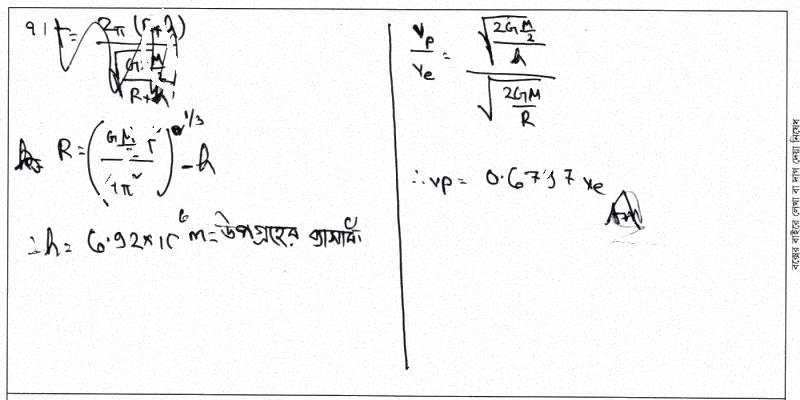 R = (GM/2 T² / 4π²)^1/3 - h
∴ h = 6.92×10⁶ m = উপগ্রহের ব্যাসার্ধ
vp/ve = √(2G M/2 / h) / √(2GM / R)
∴ vp = 0.6737 ve
বক্সের বাইরে লেখা বা দাগ দেয়া নিষেধ